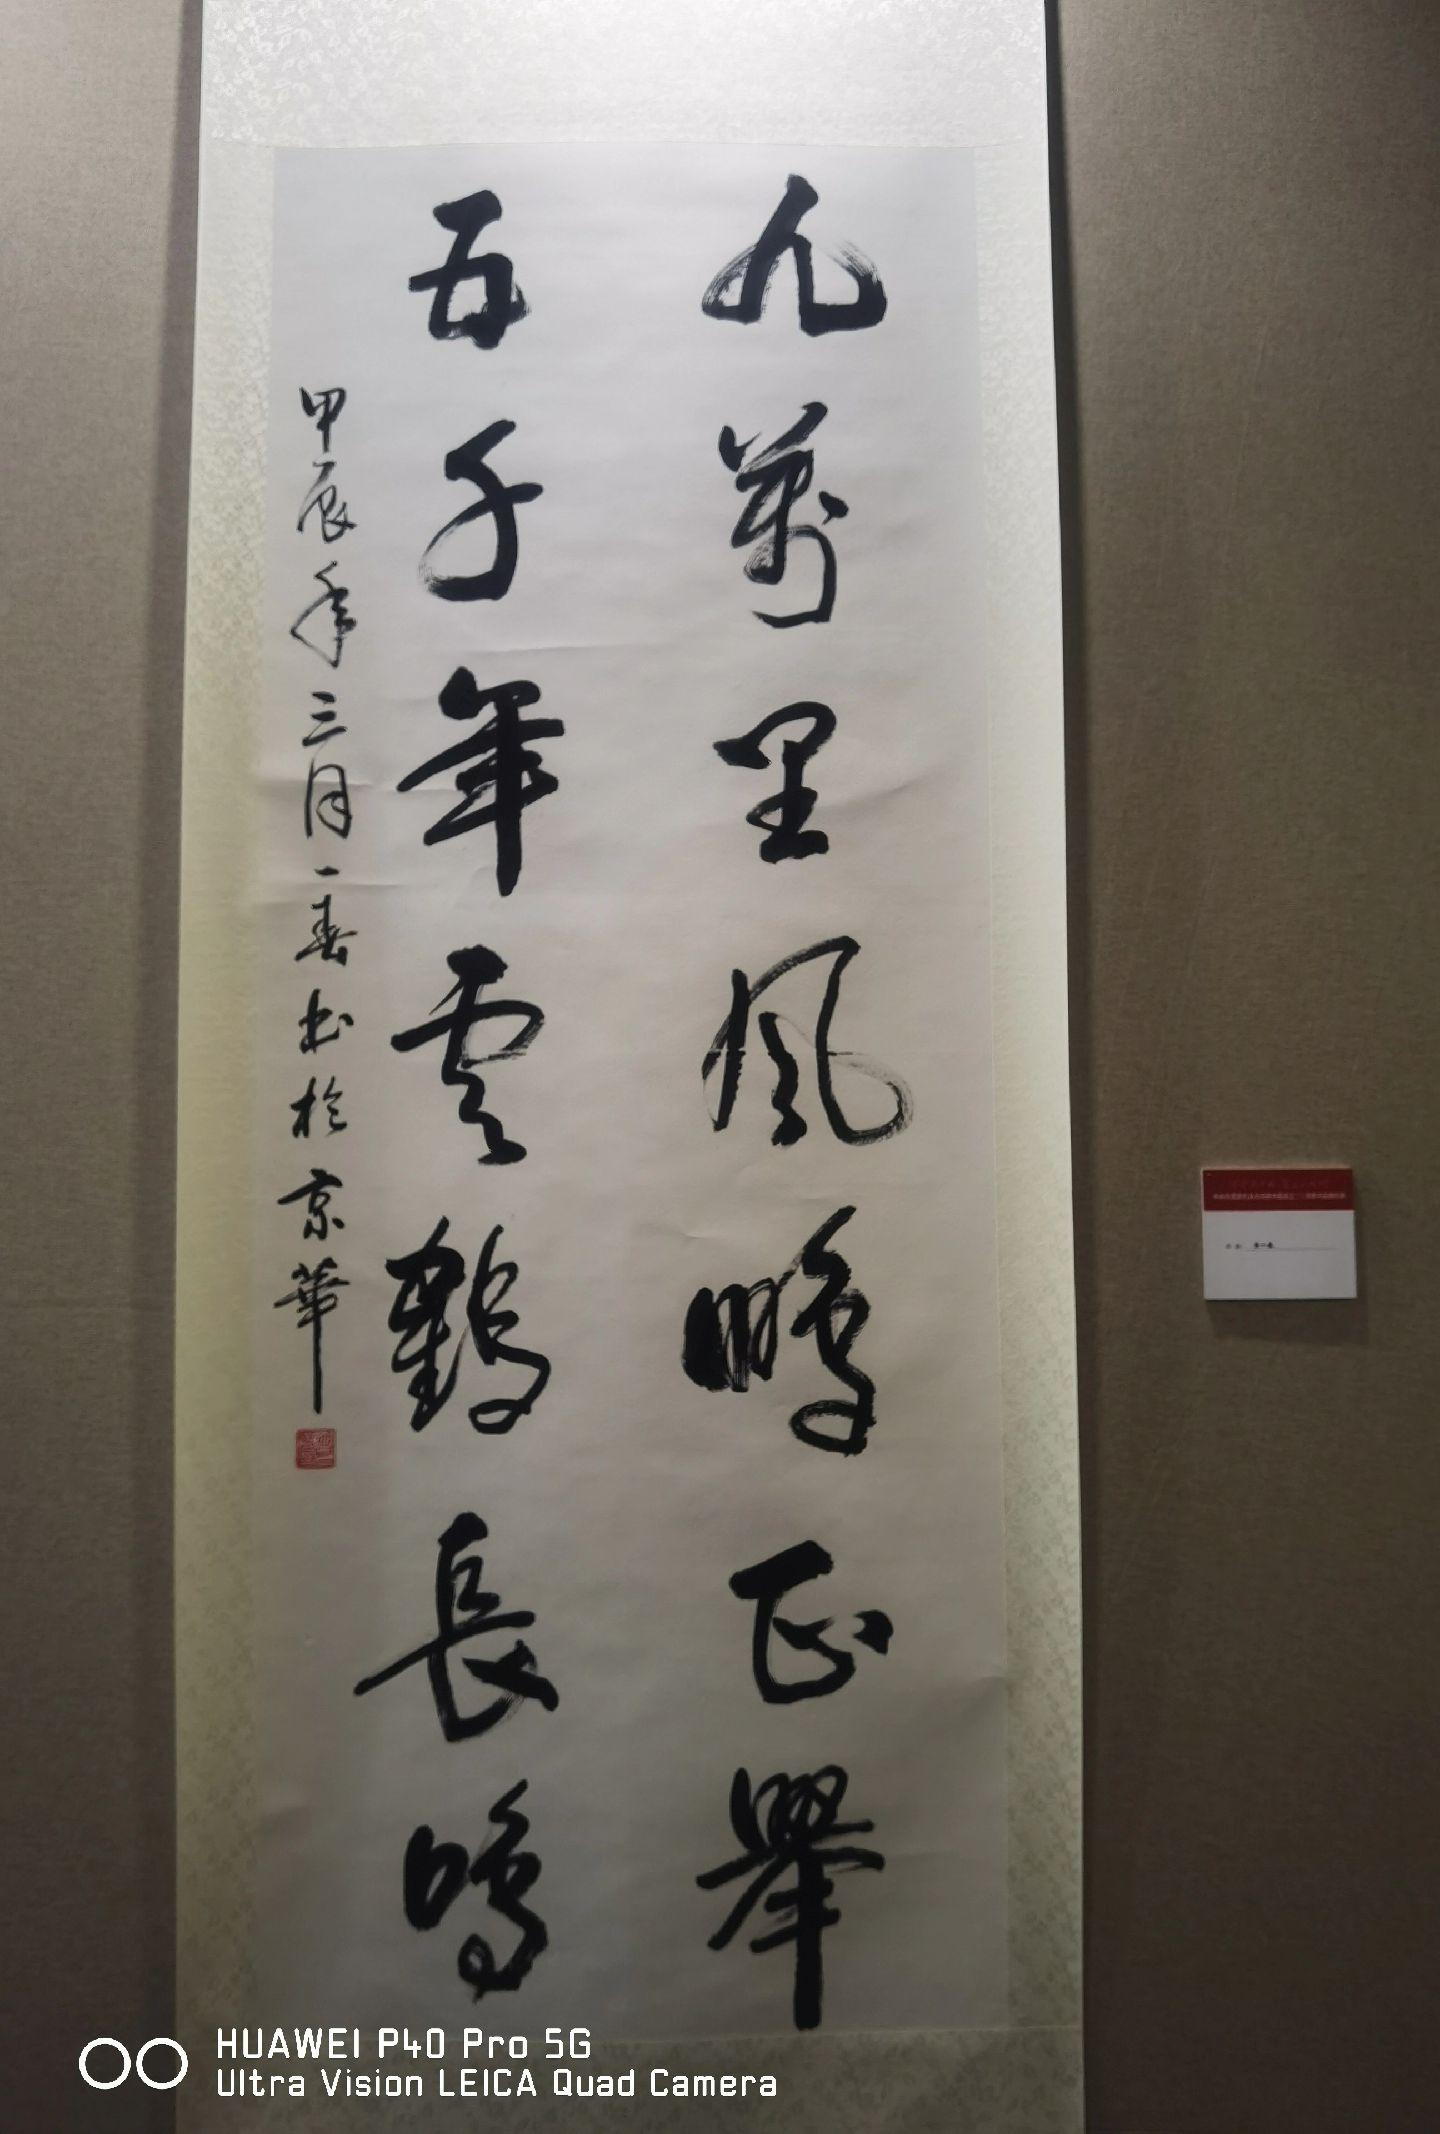 九萬里風鵬正舉
五千年雲鶴長鳴
甲辰年三月一春书於京華
HUAWEI P40 Pro 5G
Ultra Vision LEICA Quad Camera